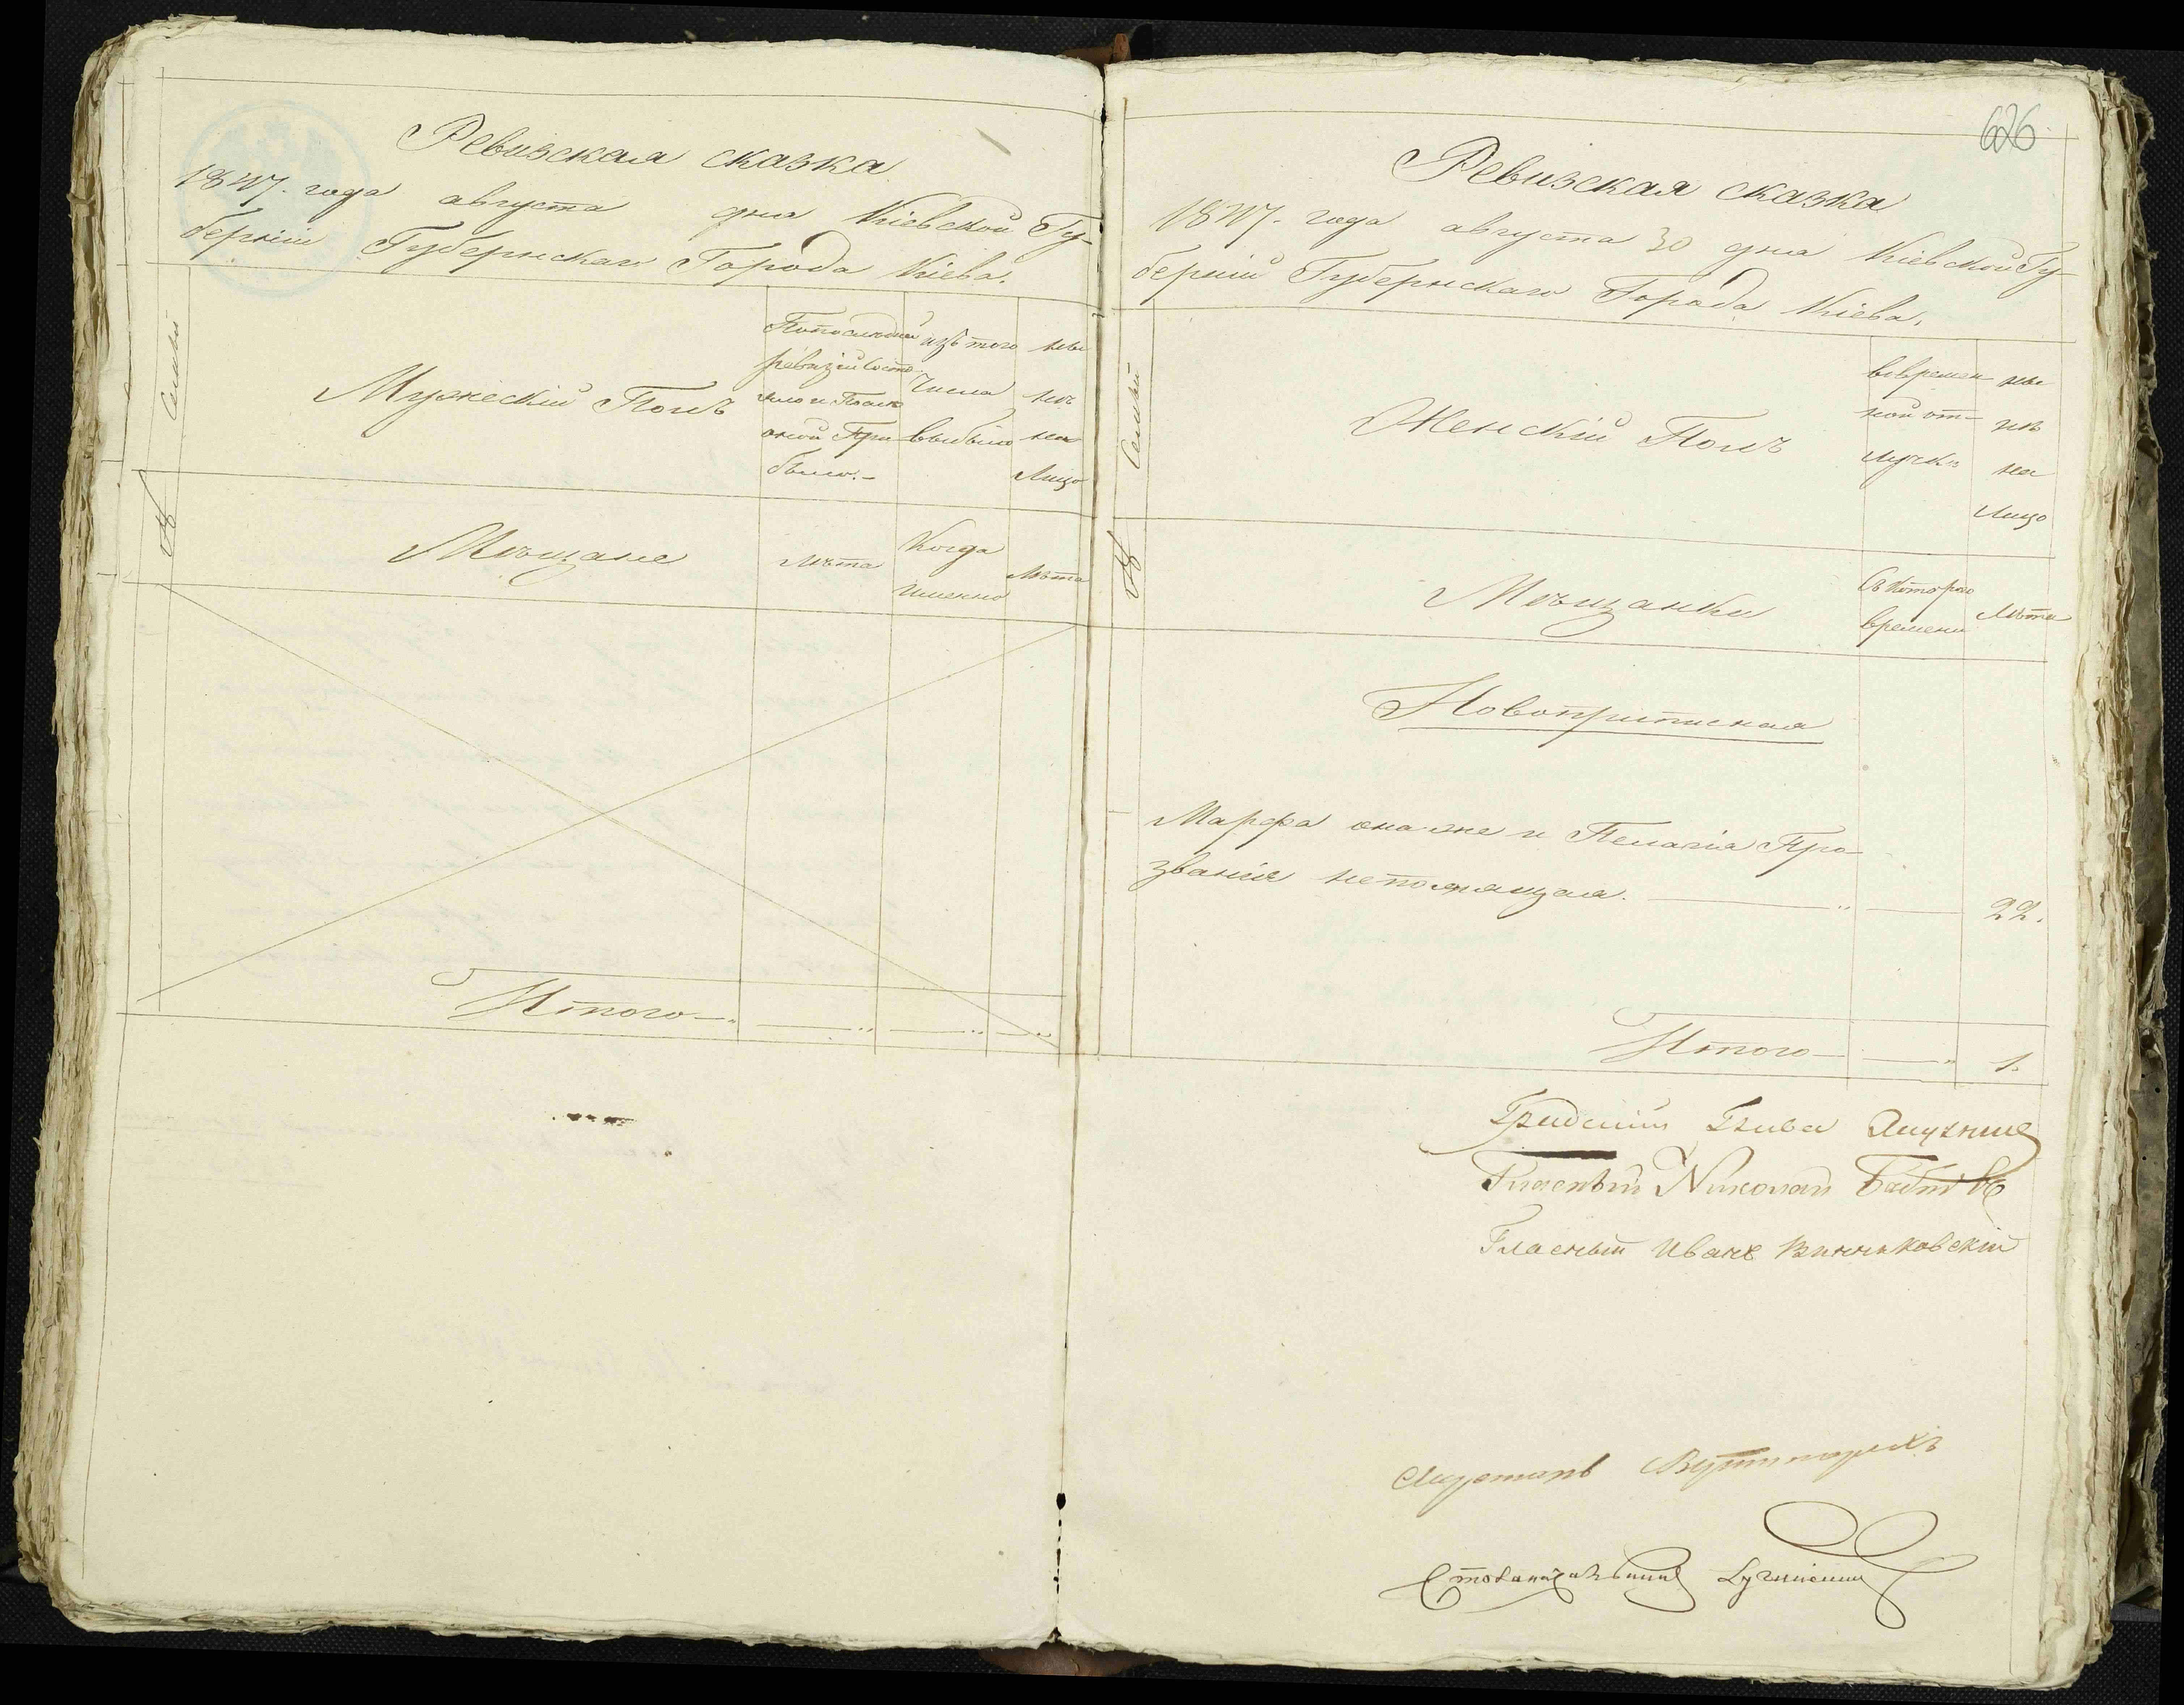 Ревизская сказка
1847. года августа дня Кіевской Гу-
берніи Губернскаго Города Кіева.
Семьи
Мужескій Полъ
По последней
ревизіи состо
яло и После
оной При
было.-
изъ того
Числа
выбыло
ны
нѣ
на
Лицо
№
Мѣщане
Лѣта
Когда
именно
Лѣта
Итого
626
Ревизская сказка
1847. года августа 30 дня Кіевской Гу-
берніи Губернскаго Города Кіева.
Семьи
Женскій Полъ
вовремен
ной от-
лучкѣ
ны
нѣ
на
Лицо
№
Мѣщанки
Съ котораго
времени
Лѣта
Новоприписная
Марфа она же и Пелагія Про-
званія непомнящая. 22.
Итого 1.
Градскій Глава
Гласный Николай
Гласный Иванъ Винниковскій